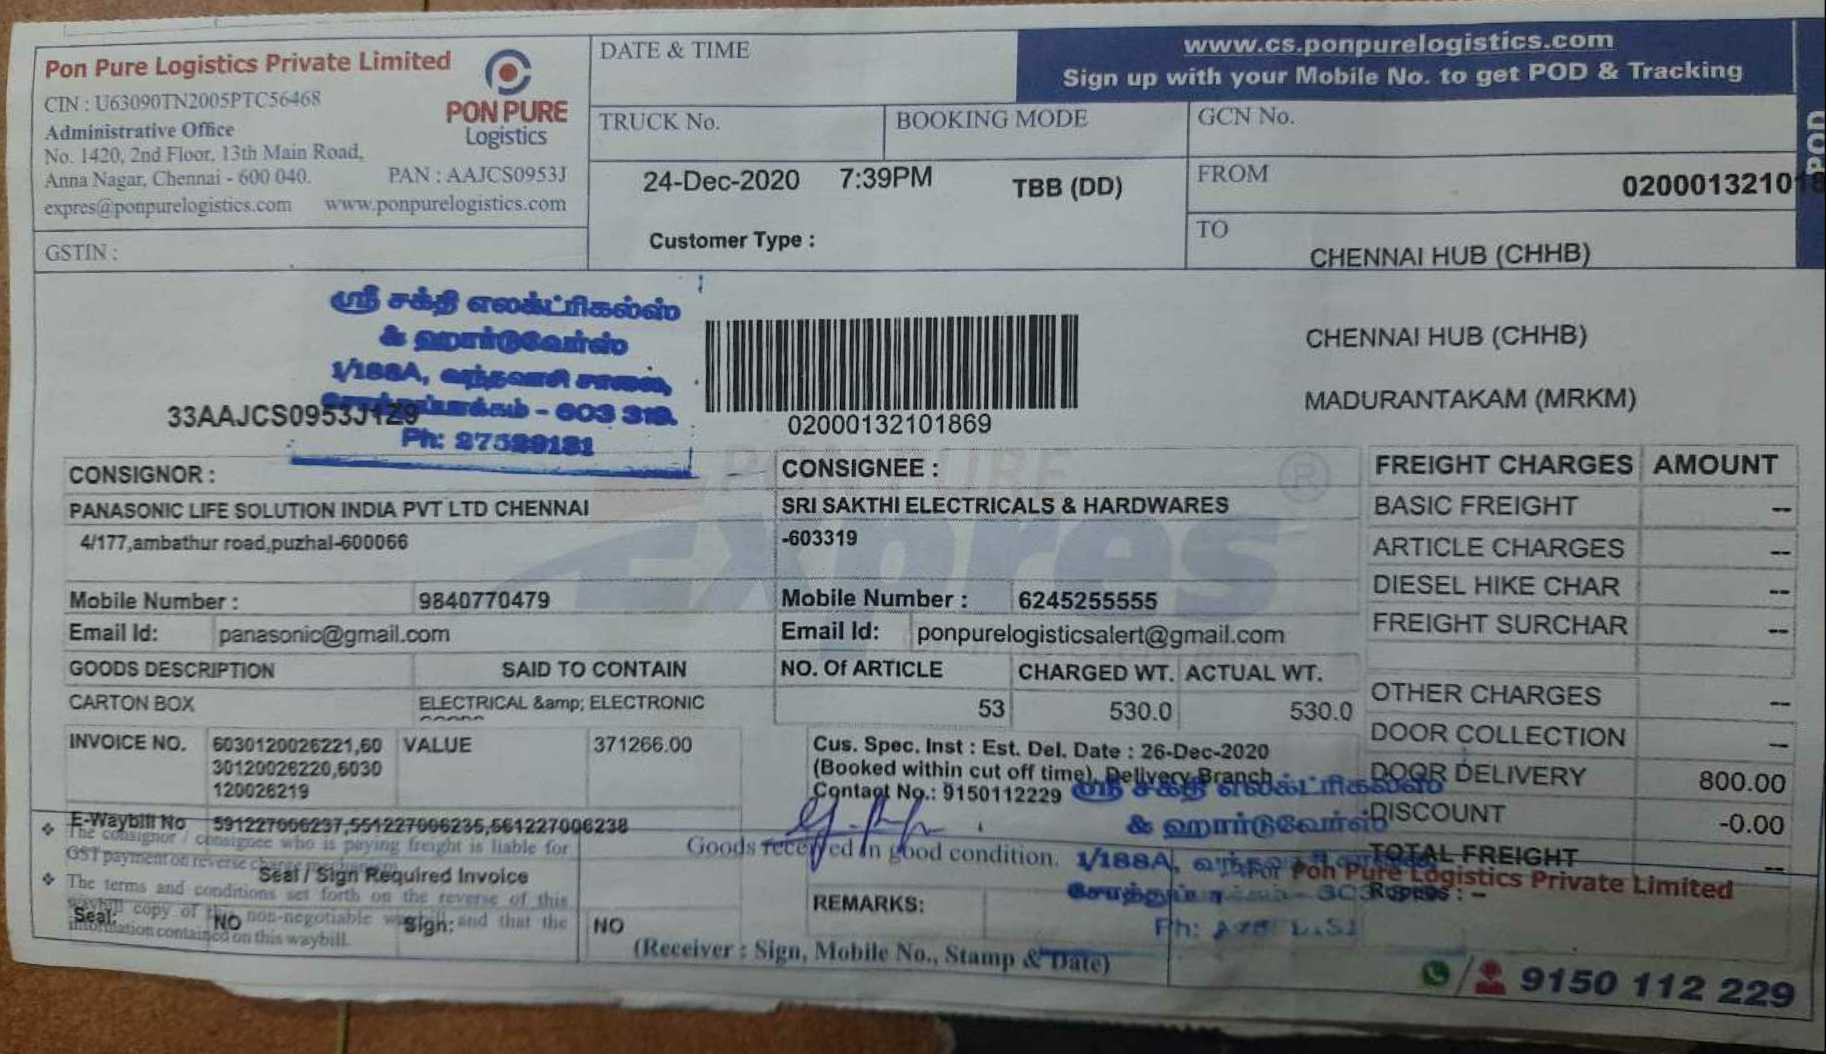 Pon Pure Logistics Private Limited
CIN : U63090TN2005PTC56468
Administrative Office
No. 1420, 2nd Floor, 13th Main Road,
Anna Nagar, Chennai - 600 040.
PAN : AAJCS0953J
expres@ponpurelogistics.com www.ponpurelogistics.com
PON PURE
Logistics
GSTIN :
DATE & TIME
www.cs.ponpurelogistics.com
Sign up with your Mobile No. to get POD & Tracking
POD
TRUCK No.
BOOKING MODE
GCN No.
24-Dec-2020 7:39PM
TBB (DD)
FROM
020001321018
Customer Type :
TO
CHENNAI HUB (CHHB)
ஸ்ரீ சக்தி எலக்ட்ரிகல்ஸ்
& ஹார்டுவேர்ஸ்
1/188A, வந்தவாசி சாலை,
- 603 319.
Ph: 27529181
33AAJCS0953J1Z9
02000132101869
CHENNAI HUB (CHHB)
MADURANTAKAM (MRKM)
PON PURE
Expres
CONSIGNOR :
PANASONIC LIFE SOLUTION INDIA PVT LTD CHENNAI
4/177,ambathur road,puzhal-600066
Mobile Number : 9840770479
Email Id: panasonic@gmail.com
CONSIGNEE :
SRI SAKTHI ELECTRICALS & HARDWARES
-603319
Mobile Number : 6245255555
Email Id: ponpurelogisticsalert@gmail.com
GOODS DESCRIPTION SAID TO CONTAIN NO. Of ARTICLE CHARGED WT. ACTUAL WT.
CARTON BOX ELECTRICAL &amp; ELECTRONIC 53 530.0 530.0
INVOICE NO. 6030120026221,60
30120026220,6030
120026219
VALUE 371266.00
E-Waybill No 591227006237,551227006235,561227006238
Cus. Spec. Inst : Est. Del. Date : 26-Dec-2020
(Booked within cut off time), Delivery Branch
Contact No.: 9150112229
FREIGHT CHARGES AMOUNT
BASIC FREIGHT --
ARTICLE CHARGES --
DIESEL HIKE CHAR --
FREIGHT SURCHAR --
OTHER CHARGES --
DOOR COLLECTION --
DOOR DELIVERY 800.00
DISCOUNT -0.00
TOTAL FREIGHT --
Rupees : --
ஸ்ரீ சக்தி எலக்ட்ரிகல்ஸ்
& ஹார்டுவேர்ஸ்
1/188A,
Ph:
The consignor / consignee who is paying freight is liable for
GST payment on reverse charge mechanism.
Seal / Sign Required Invoice
The terms and conditions set forth on the reverse of this
waybill copy of this non-negotiable waybill and that the
information contained on this waybill.
Seal: NO Sign: NO
Goods received in good condition.
For Pon Pure Logistics Private Limited
REMARKS:
(Receiver : Sign, Mobile No., Stamp & Date)
9150 112 229